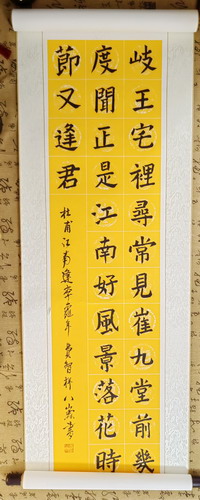 岐王宅裡尋常見崔九堂前幾
度聞正是江南好風景落花時
節又逢君
杜甫江南逢李龜年 智 八歲書